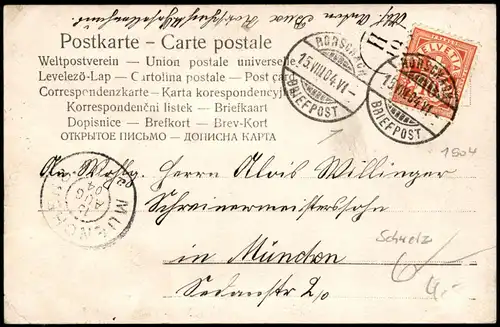 Postkarte – Carte postale
Weltpostverein – Union postale universelle
Levelező-Lap – Cartolina postale – Post card
Correspondenzkarte – Karta korespondencyjna
Korespondenční listek – Briefkaart
Dopisnice – Brefkort – Brev-Kort
ОТКРЫТОЕ ПИСЬМО – ДОПИСНА КАРТА
RORSCHACH
15.VIII.04.VI–
BRIEFPOST
RORSCHACH
15.VIII.04.VI–
BRIEFPOST
HELVETIA
II
1904
Herrn Alois Willinger
Schreinermeisterssohn
in München
Sedanstr
MUENCHEN
AUG
04
Schweiz
6
4.-